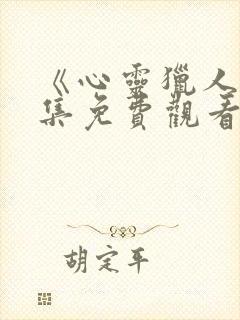 《心靈獵人
集免費觀看
胡定平